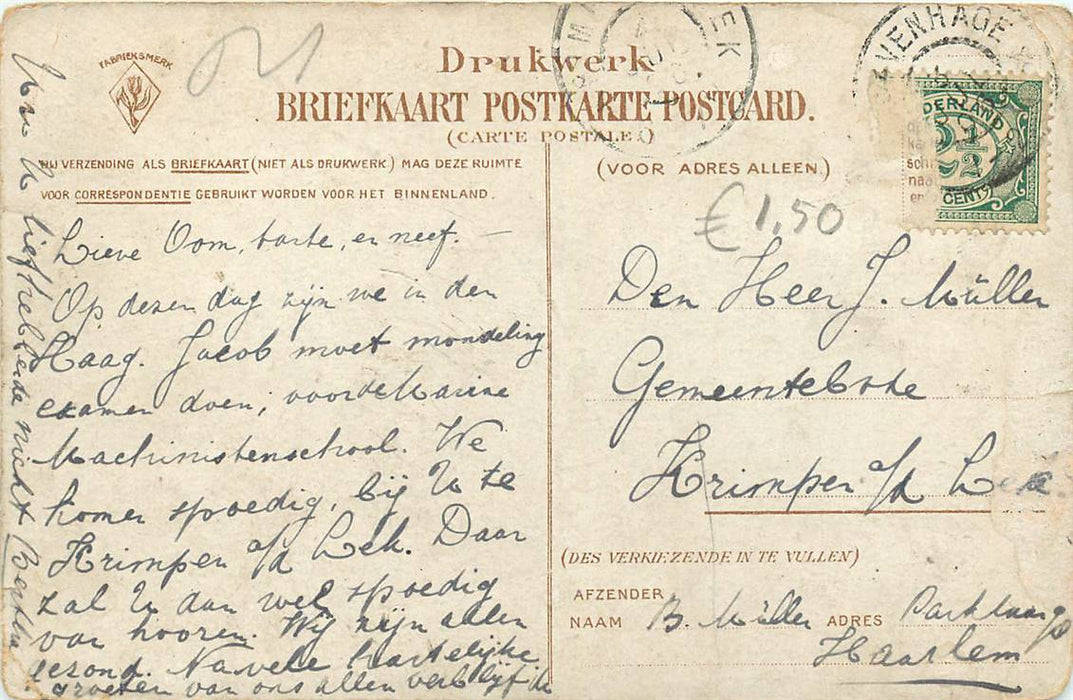 FABRIEKSMERK
Drukwerk
BRIEFKAART POSTKARTE-POSTCARD.
(CARTE POSTALE.)
BIJ VERZENDING ALS BRIEFKAART (NIET ALS DRUKWERK) MAG DEZE RUIMTE
VOOR CORRESPONDENTIE GEBRUIKT WORDEN VOOR HET BINNENLAND.
Lieve Oom, tante, en neef. —
Op dezen dag zijn we in den
Haag. Jacob moet mondeling
examen doen, voor de Marine
Machinistenschool. We
komen spoedig, bij U te
Krimpen a/d Lek. Daar
zal U dan wel spoedig
van hooren. Wij zijn allen
gezond. Na vele hartelijke
groeten van ons allen verblijf ik
Uw U liefhebbende nicht
(VOOR ADRES ALLEEN.)
€ 1,50
Den Heer J. Müller
Gemeentebode
Krimpen a/d Lek
(DES VERKIEZENDE IN TE VULLEN)
AFZENDER
NAAM B. Müller ADRES Parklaan
Haarlem
VENHAGE
DERLAND
2½
CENT